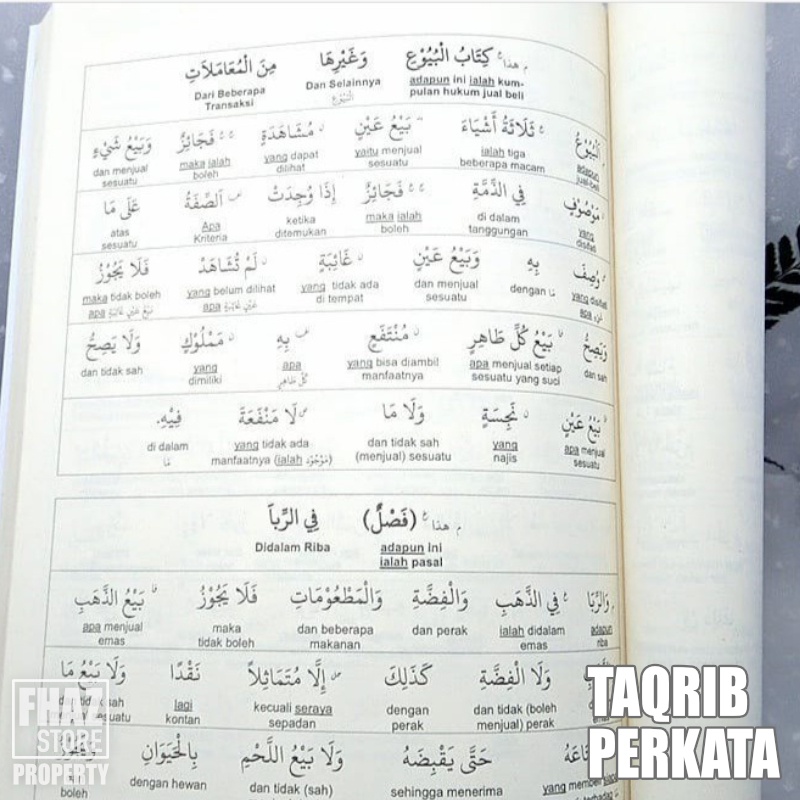 م هذا خ كِتَابُ الْبُيُوْعِ وَغَيْرِهَا مِنَ الْمُعَامَلَاتِ
adapun ini ialah kum-pulan hukum jual beli Dan Selainnya الْبُيُوْعِ Dari Beberapa Transaksi
اَلْبُيُوْعُ ثَلَاثَةُ أَشْيَاءَ بَيْعُ عَيْنٍ مُشَاهَدَةٍ فَجَائِزٌ وَبَيْعُ شَيْءٍ
adapun jual-beli ialah tiga beberapa macam yaitu menjual sesuatu yang dapat dilihat maka ialah boleh dan menjual sesuatu
مَوْصُوْفٍ فِي الذِّمَّةِ فَجَائِزٌ إِذَا وُجِدَتْ اَلصِّفَةُ عَلَى مَا
yang disifati di dalam tanggungan maka ialah boleh ketika ditemukan Apa Kriteria atas sesuatu
وُصِفَ بِهِ وَبَيْعُ عَيْنٍ غَائِبَةٍ لَمْ تُشَاهَدْ فَلَا يَجُوْزُ
yang disifati apa dengan مَا dan menjual sesuatu yang tidak ada di tempat yang belum dilihat apa عَيْنٍ غَائِبَةٍ maka tidak boleh apa بَيْعُ عَيْنٍ غَائِبَةٍ
وَيَصِحُّ بَيْعُ كُلِّ طَاهِرٍ مُنْتَفَعٍ بِهِ مَمْلُوْكٍ وَلَا يَصِحُّ
dan sah apa menjual setiap sesuatu yang suci yang bisa diambil manfaatnya apa كُلِّ طَاهِرٍ yang dimiliki dan tidak sah
بَيْعُ عَيْنٍ نَجِسَةٍ وَلَا مَا لَا مَنْفَعَةَ فِيْهِ.
apa menjual sesuatu yang najis dan tidak sah (menjual) sesuatu yang tidak ada manfaatnya (ialah مَوْجُوْدٌ) di dalam مَا
م هذا خ (فَصْلٌ) فِي الرِّبَا
adapun ini ialah pasal Didalam Riba
وَالرِّبَا فِي الذَّهَبِ وَالْفِضَّةِ وَالْمَطْعُوْمَاتِ فَلَا يَجُوْزُ بَيْعُ الذَّهَبِ
adapun riba ialah didalam emas dan perak dan beberapa makanan maka tidak boleh apa menjual emas
وَلَا الْفِضَّةِ كَذَلِكَ إِلَّا مُتَمَاثِلًا نَقْدًا وَلَا بَيْعُ مَا
dan tidak (boleh menjual) perak dengan perak kecuali seraya sepadan lagi kontan
حَتَّى يَقْبِضَهُ وَلَا بَيْعُ اللَّحْمِ بِالْحَيَوَانِ
sehingga menerima dan tidak (sah) dengan hewan boleh
TAQRIB
PERKATA
FHAZ
STORE
PROPERTY